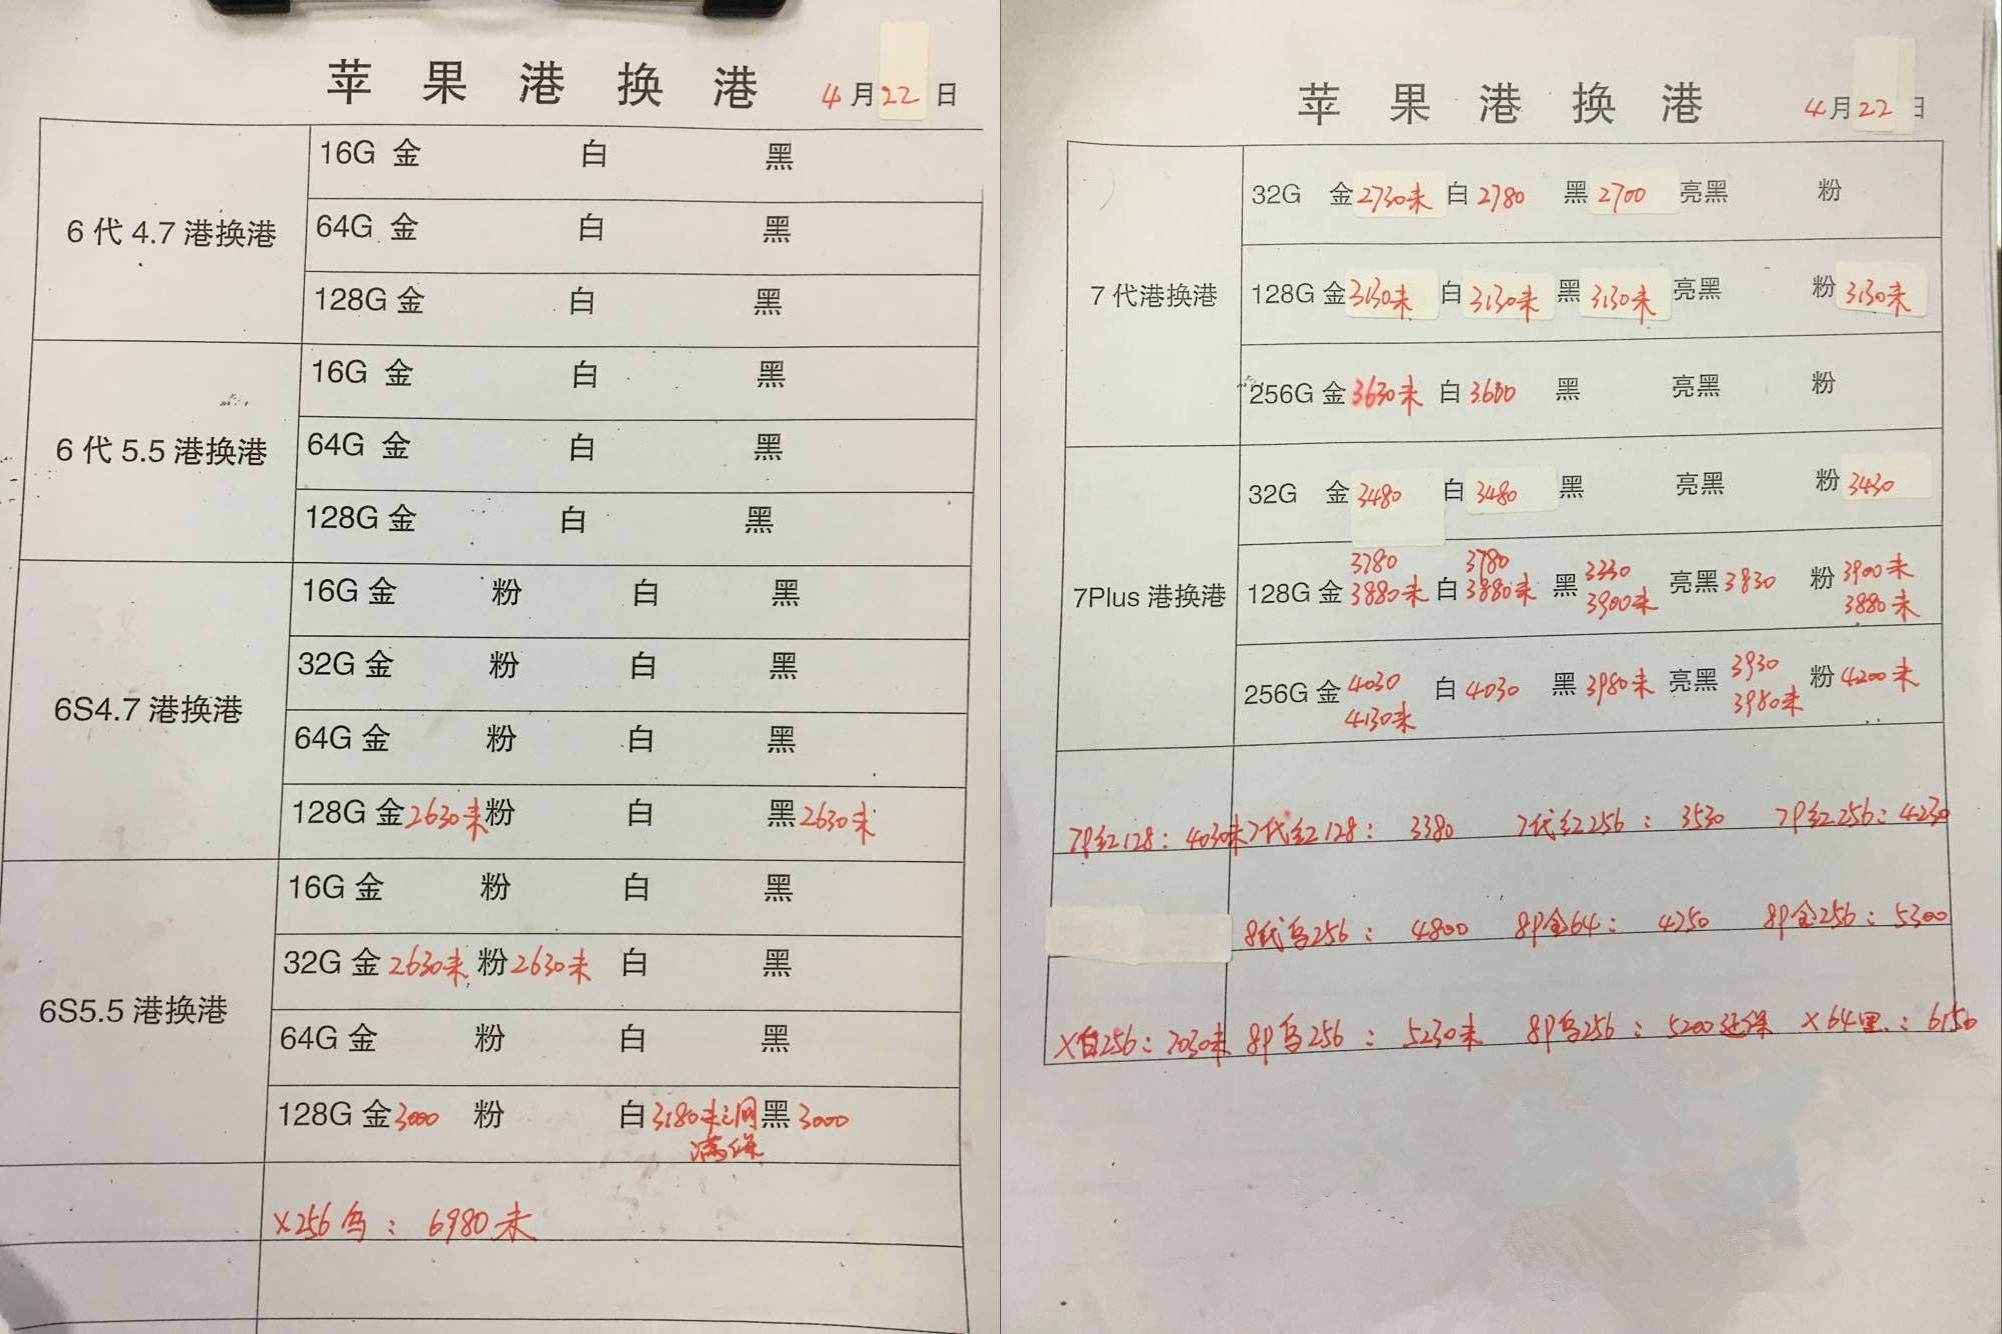 苹果港换港 4月22日
6代4.7港换港
16G 金 白 黑
64G 金 白 黑
128G 金 白 黑
6代5.5港换港
16G 金 白 黑
64G 金 白 黑
128G 金 白 黑
6S4.7港换港
16G 金 粉 白 黑
32G 金 粉 白 黑
64G 金 粉 白 黑
128G 金2630未 粉 白 黑2630未
6S5.5港换港
16G 金 粉 白 黑
32G 金2630未 粉2630未 白 黑
64G 金 粉 白 黑
128G 金3000 粉 白3180未三网 黑3000
满保
X256乌：6980未
苹果港换港 4月22日
7代港换港
32G 金2730未 白2780 黑2700 亮黑 粉
128G 金3130未 白3130未 黑3130未 亮黑 粉3130未
256G 金3630未 白3600 黑 亮黑 粉
7Plus港换港
32G 金3480 白3480 黑 亮黑 粉3430
3780 3780
128G 金3880未 白3880未 黑 3900未 亮黑3830 粉3900未
3880未
256G 金4030 白4030 黑3980未 亮黑3930 粉4200未
4130未 3980未
7P红128：4030未 7代红128：3380 7代红256：3530 7P红256：4230
8代乌256：4800 8P金64：4250 8P金256：5300
X白256：7030未 8P乌256：5230未 8P乌256：5200延保 X64黑：6150